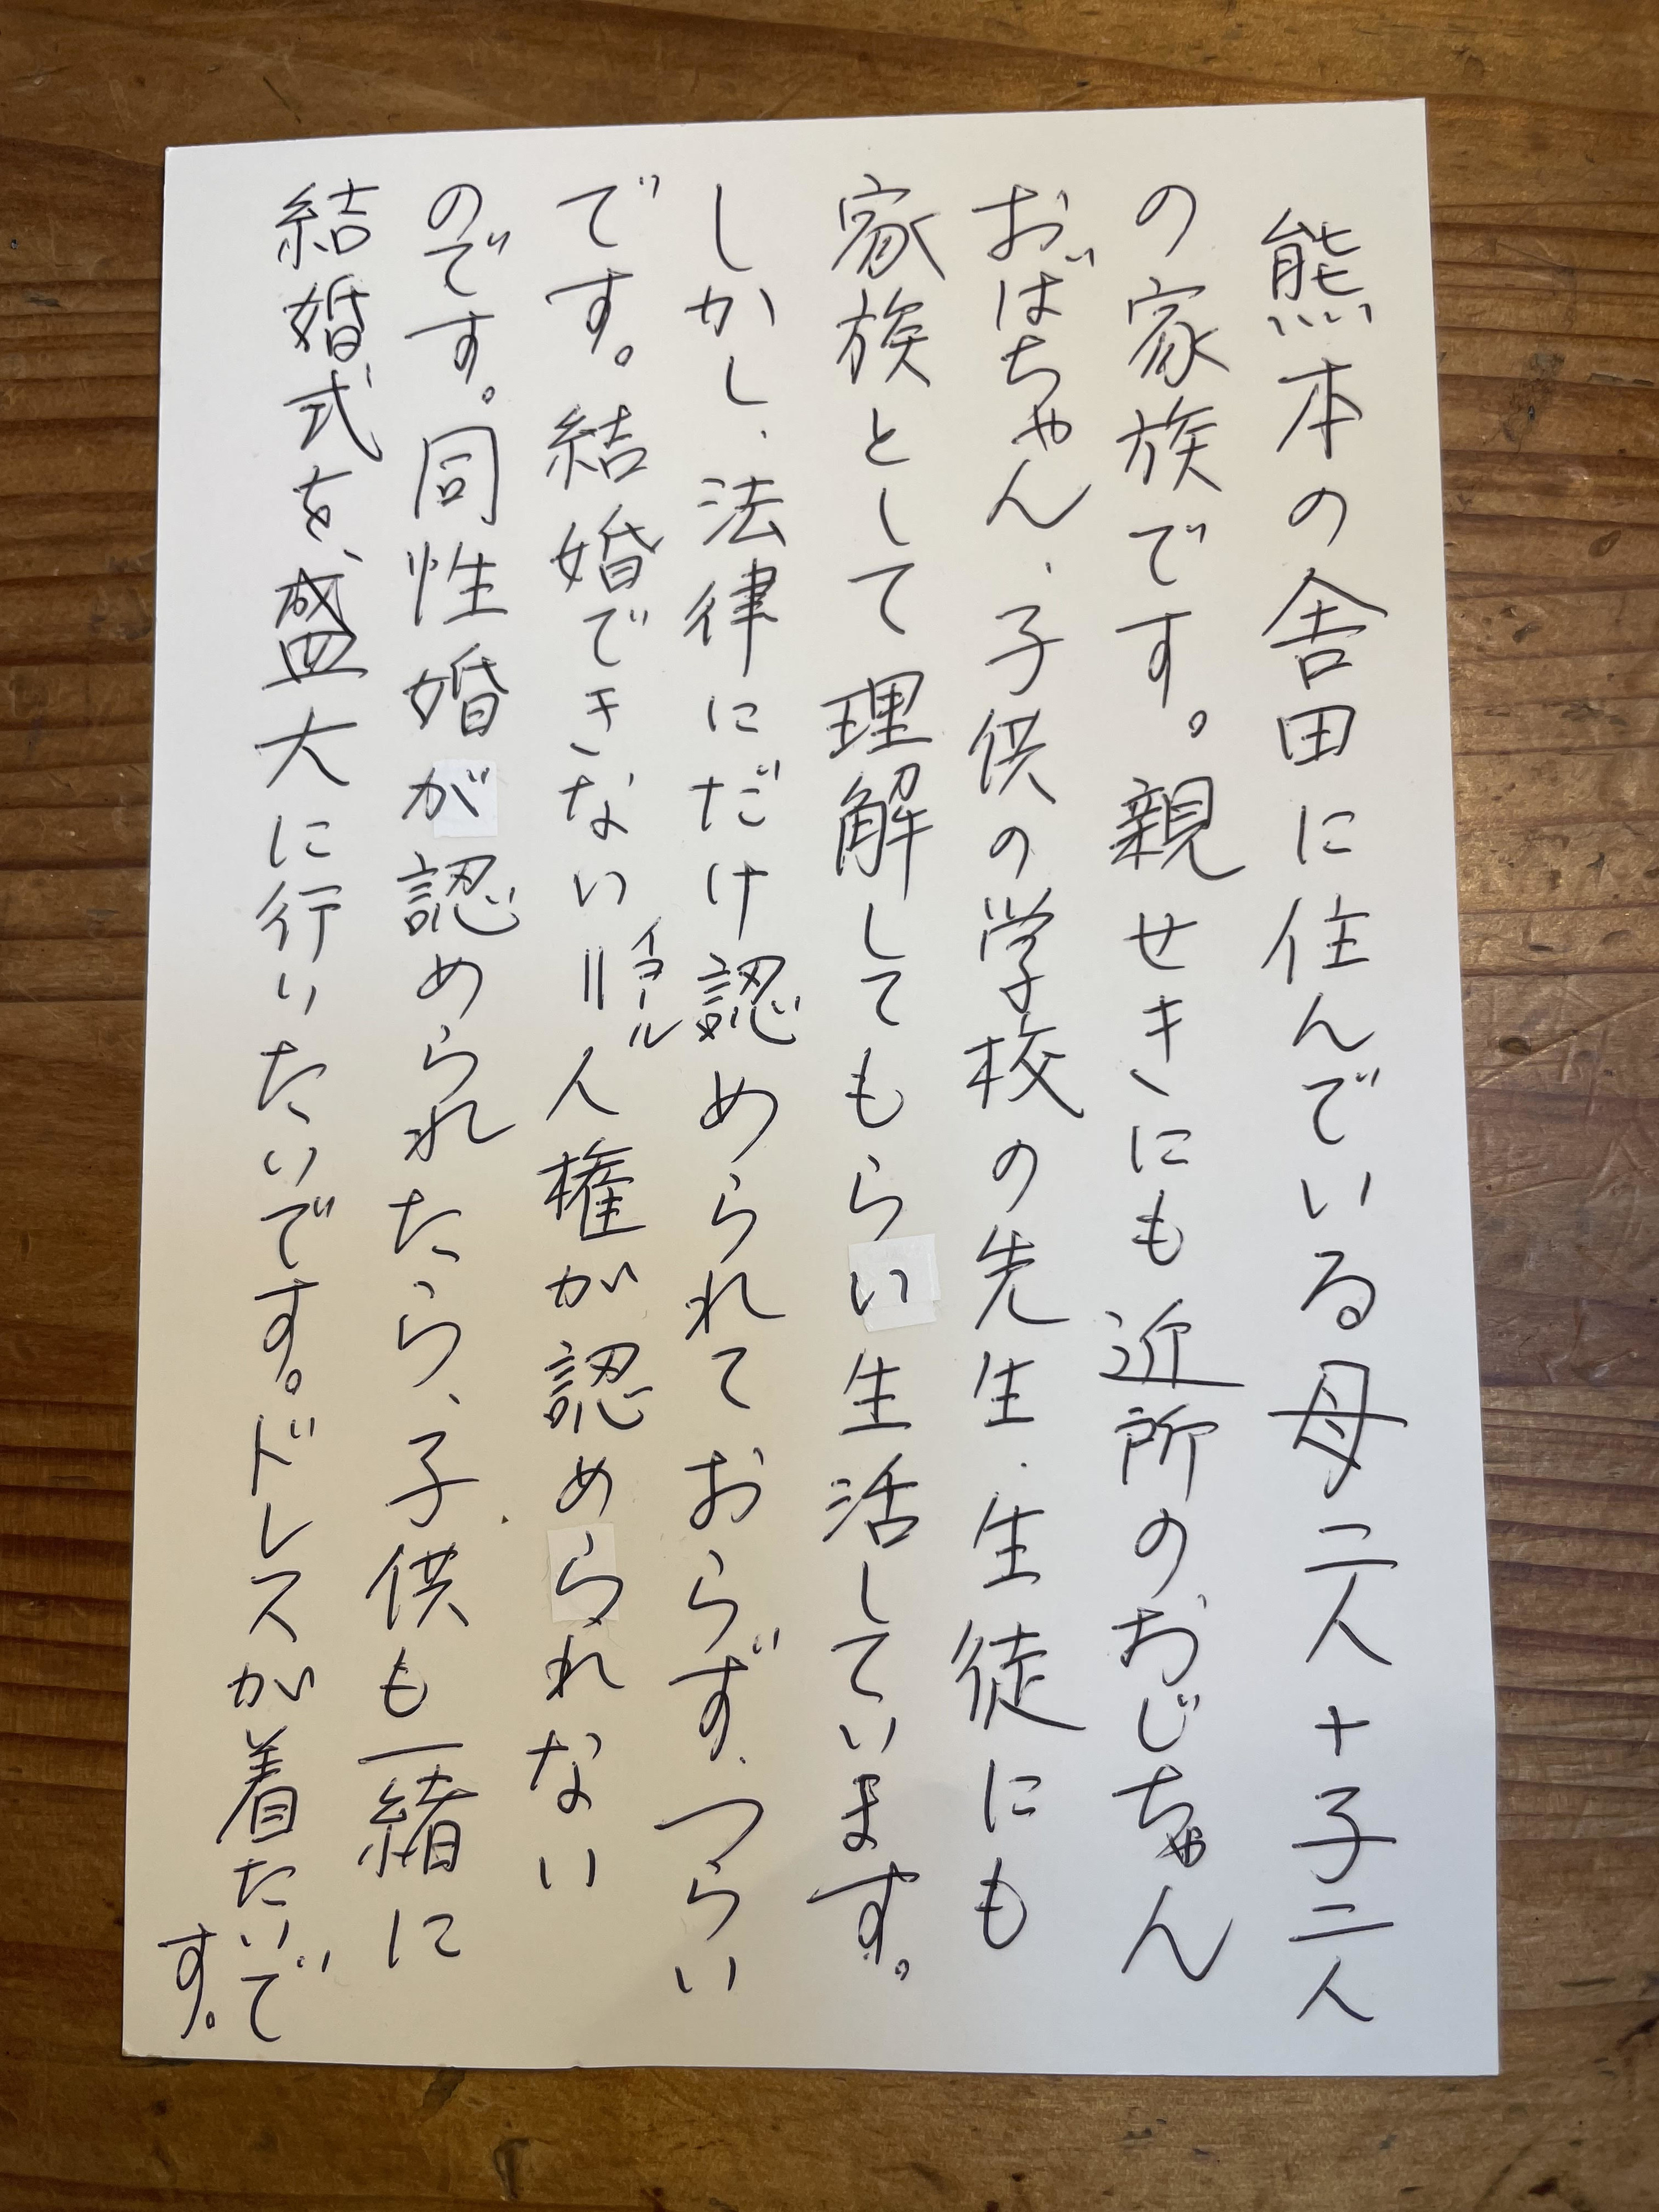 熊本の舎田に住んでいる母二人+子二人
の家族です。親せきにも近所のおじちゃん
おばちゃん、子供の学校の先生、生徒にも
家族として理解してもらい生活しています。
しかし、法律にだけ認められておらず、つらい
です。結婚できない=イコール人権が認められない
のです。同性婚が認められたら、子供も一緒に
結婚式を、盛大に行いたいです。ドレスが着たいで
す。